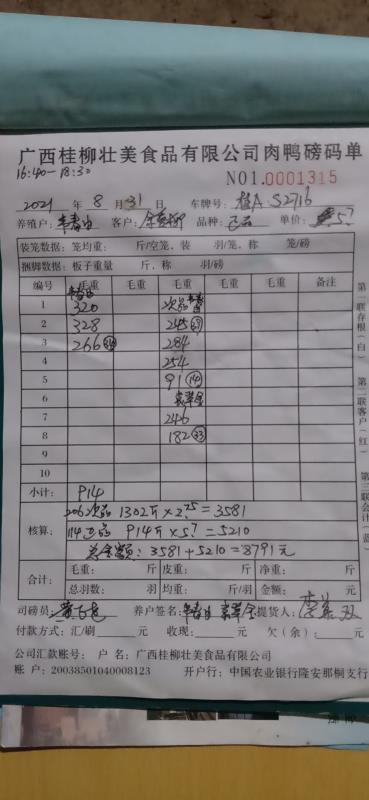 广西桂柳壮美食品有限公司肉鸭磅码单
16:40-18:30
NO1.0001315
2021 年 8 月 31 日 车牌号: 桂A S2716
养殖户: 客户: 品种: 正品 单价: 5?
装笼数据: 笼均重: 斤/空笼, 装 羽/笼, 称 笼/磅
捆脚数据: 板子重量 斤, 称 羽/磅
编号 毛重 毛重 毛重 毛重 毛重 备注
1 320 次品
2 328 245
3 266 284
4 254
5 91 14
6
7 246
8 182 33
9
10
小计: 914
206次品 1302斤×2.75=3581
核算: 114正品 914斤×5?=5210
总金额: 3581+5210=8791元
合计: 毛重: 斤 皮重: 斤 净重: 斤
总羽数: 羽 均重: 斤/羽 金额: 元
司磅员: 养户签名: 提货人:
付款方式: 汇/刷 元 收现: 元 欠(余): 元
公司汇款账号: 户 名: 广西桂柳壮美食品有限公司
账 户: 20038501040008123 开户行: 中国农业银行隆安那桐支行
第一联存根(白) 第二联客户(红) 第三联会计(蓝)